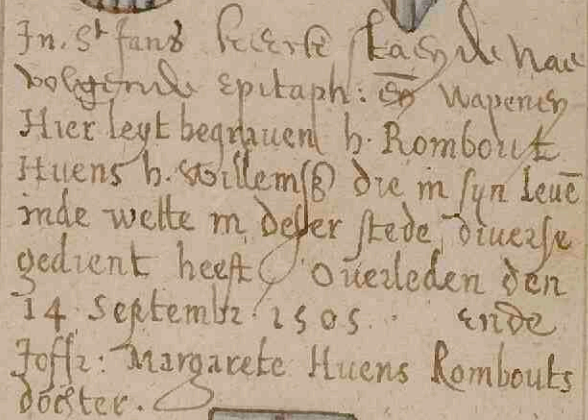 In. St Jans keerke staen de Nae
volgende epitaph: eñ Wapenen
Hier leyt begrauen h. Rombout
Huens h. Willemsß die in syn leuē
inde wette in deser stede, diuerse
gedient heeft, Ouerleden den
14 Septembr. 1505. ende
Joffr: Margarete Huens Rombouts
dochter.